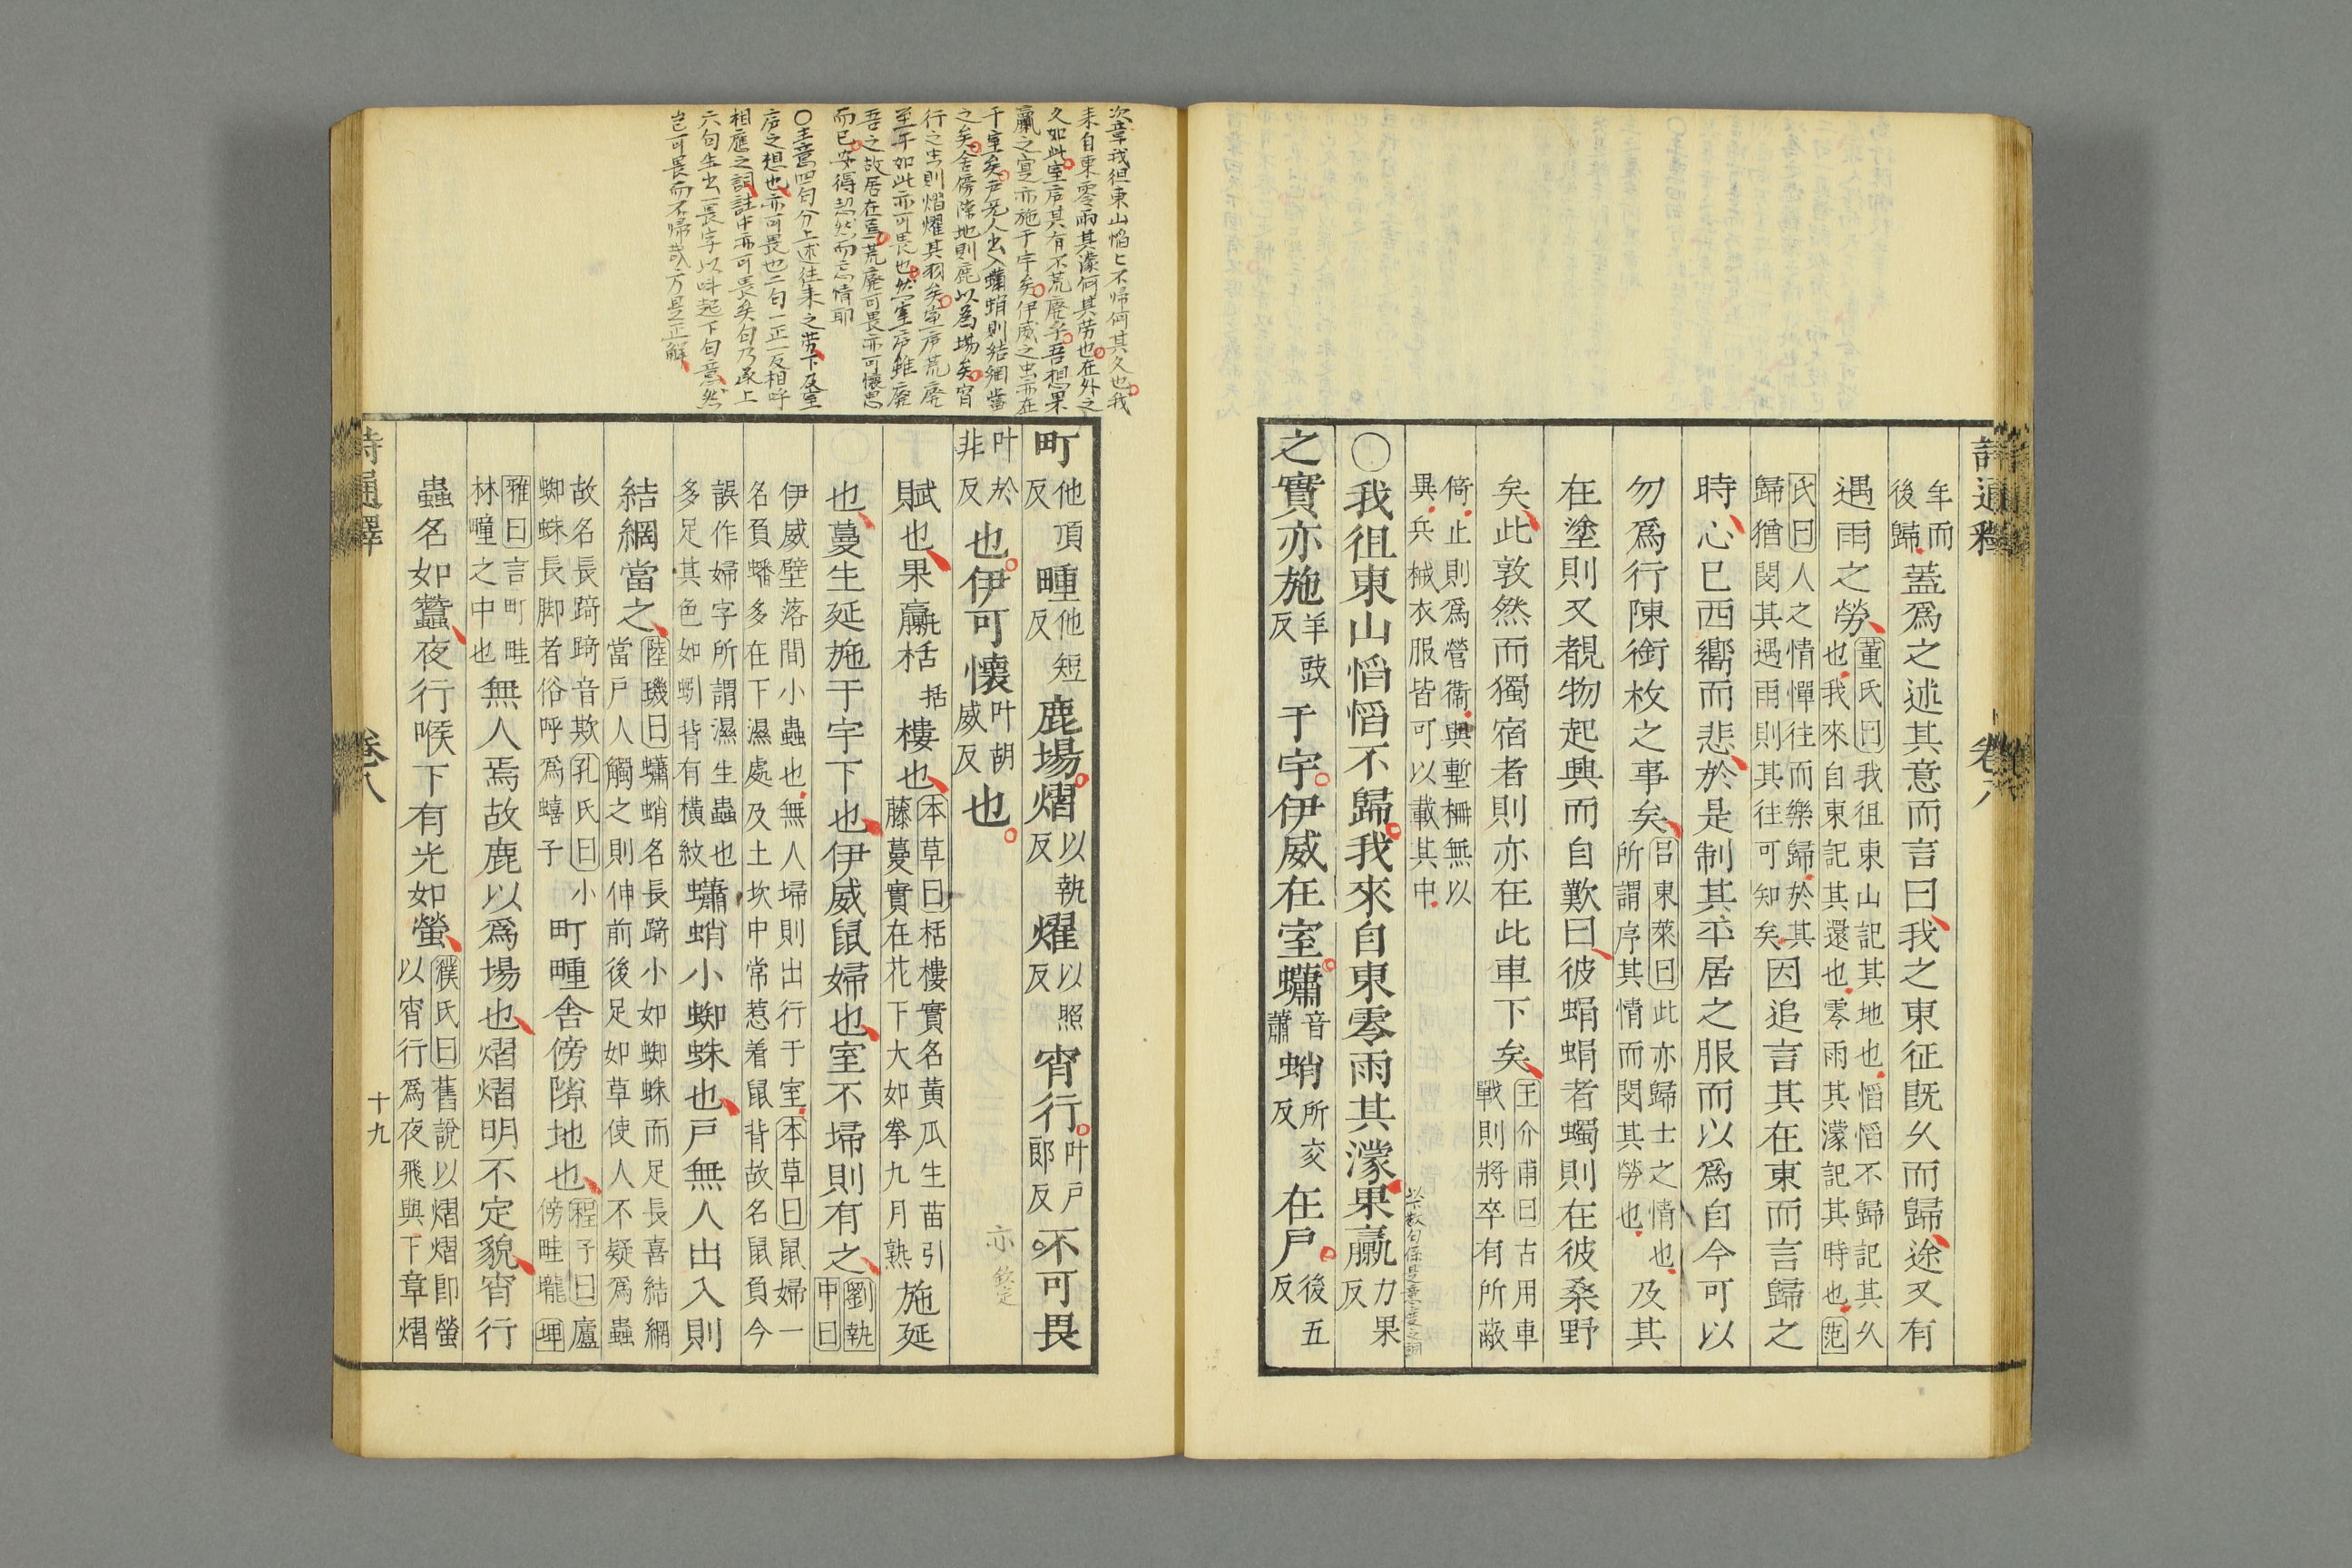 詩通釋
卷八
年而
後歸
蓋爲之述其意而言曰我之東征既久而歸途又有
遇雨之勞
董氏曰我徂東山記其地也慆慆不歸記其久
也我來自東記其還也零雨其濛記其時也范
氏曰人之情憚往而樂歸於其
歸猶閔其遇雨則其往可知矣
因追言其在東而言歸之
時心已西嚮而悲於是制其平居之服而以爲自今可以
勿爲行陳銜枚之事矣
呂東萊曰此亦歸士之情也
所謂序其情而閔其勞也
及其
在塗則又覩物起興而自歎曰彼蜎蜎者蠋則在彼桑野
矣此敦然而獨宿者則亦在此車下矣
王介甫曰古用車
戰則將卒有所蔽
倚止則爲營衞與塹柵無以
異兵械衣服皆可以載其中
以下數句俱是章室廬之詞
○我徂東山慆慆不歸我來自東零雨其濛果臝
力果
反
之實亦施
羊豉
反
于宇伊威在室蠨
音
蕭
蛸
所交
反
在戶
後五
反
次章我徂東山慆〻不歸何其久也我
來自東零雨其濛何其勞也在外之
久如此室廬其有不荒廢乎吾想果
臝之實亦施于宇矣伊威之虫亦在
于室矣戶无人出入蠨蛸則結網當
之矣舍傍隙地則鹿以為場矣宵
行之虫則熠燿其羽矣室廬荒廢
至于如此亦可畏也然室廬雖廢
吾之故居在焉荒廢可畏亦可懷思
而已安得恝然而忘情耶
〇主意四句分上述往來之勞下及室
廬之想也亦可畏也二句一正一反相呼
相應之詞註中亦可畏矣句乃承上
六句生出一畏字以呌起下句意然
豈可畏而不歸哉方是正解
町
他頂
反
畽
他短
反
鹿場熠
以執
反
燿
以照
反
宵行
叶戶
郎反
不可畏
叶於
非反
也伊可懷
叶胡
威反
也
賦也果臝栝
括
樓也
本草曰栝樓實名黃瓜生苗引
藤蔓實在花下大如拳九月熟
施延
也蔓生延施于宇下也伊威鼠婦也室不埽則有之
劉執
中曰
伊威壁落間小蟲也無人埽則出行于室本草曰鼠婦一
名負蟠多在下濕處及土坎中常惹着鼠背故名鼠負今
誤作婦字所謂濕生蟲也
多足其色如蚓背有橫紋
蠨蛸小蜘蛛也戶無人出入則
結網當之
陸璣曰蠨蛸名長踦小如蜘蛛而足長喜結網
當戶人觸之則伸前後足如草使人不疑爲蟲
故名長踦踦音欺孔氏曰小
蜘蛛長脚者俗呼爲蟢子
町畽舍傍隙地也
程子曰廬
傍畦壠埤
雅曰言町畦
林疃之中也
無人焉故鹿以爲場也熠熠明不定貌宵行
蟲名如蠶夜行喉下有光如螢
濮氏曰舊說以熠熠卽螢
以宵行爲夜飛與下章熠
詩通釋
卷八
十九